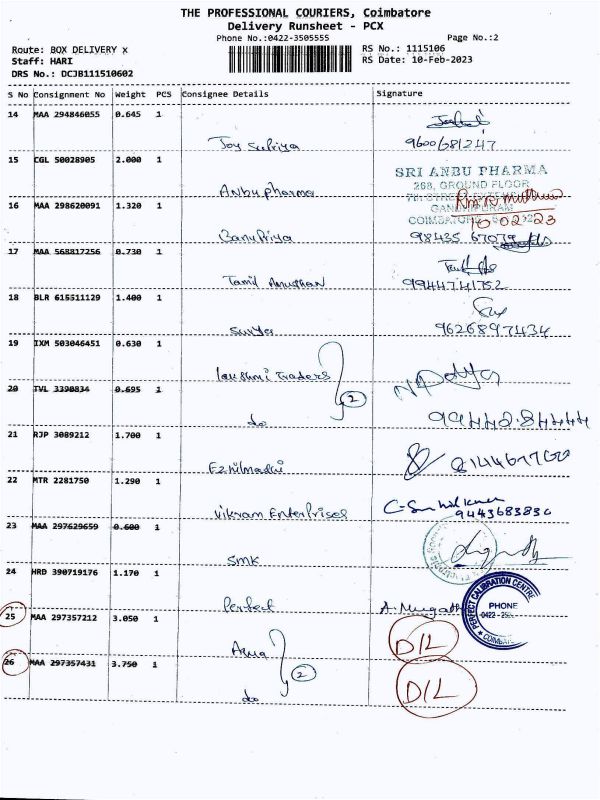 THE PROFESSIONAL COURIERS, Coimbatore
Delivery Runsheet - PCX
Phone No.:0422-3505555
Page No.:2
Route: BOX DELIVERY x
RS No.: 1115106
Staff: HARI
RS Date: 10-Feb-2023
DRS No.: DCJB111510602
S No Consignment No Weight PCS Consignee Details Signature
14 MAA 294846055 0.645 1
Joy Supriya 9600681247
15 CGL 50028905 2.000 1
SRI ANBU PHARMA
268, GROUND FLOOR
Anbu pharma
16 MAA 298620091 1.320 1
GANDHIPURAM
10.02.23
Banu Priya 98435 67079
17 MAA 568817256 0.730 1
Tamil 9944741752
18 BLR 615511129 1.400 1
Surya 9626897434
19 IXM 503046451 0.630 1
Lakshmi Traders
2
20 TVL 3390834 0.695 1
do 99442.84444
21 RJP 3089212 1.700 1
Ezhilmathi
22 MTR 2281750 1.290 1
Vikram Enterprises 9443683836
23 MAA 297629659 0.600 1
SMK
24 HRD 390719176 1.170 1
Perfect A.
PERFECT CALIBRATION CENTRE
PHONE
25 MAA 297357212 3.050 1
D/L
26 MAA 297357431 3.750 1
2
do D/L